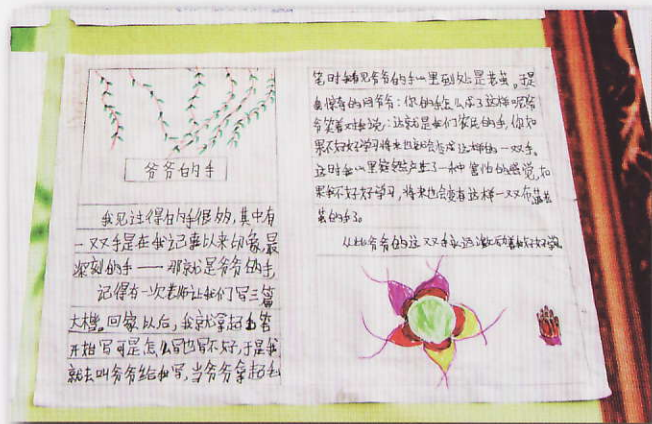 爷爷的手
我见过得的手很多,其中有
一双手是在我记事以来印象最
深刻的手——那就是爷爷的手
记得有一次老师让我们写三篇
大楷。回家以后,我就拿起毛笔
开始写可是怎么写也写不好,于是我
就去叫爷爷给我写,当爷爷拿起毛
笔时我看见爷爷的手心里到处是老茧。于是
真惊奇的问爷爷:你的手怎么成了这样呢爷
爷笑着对我说:这就是我们农民的手,你如
果不好好学习将来也就会变成这样的一双手。
这时我心里突然产生了一种害怕的感觉,如
果我不好好学习,将来也会变有这样一双布满老
茧的手了。
从此爷爷的这双手永远激励着我好好学